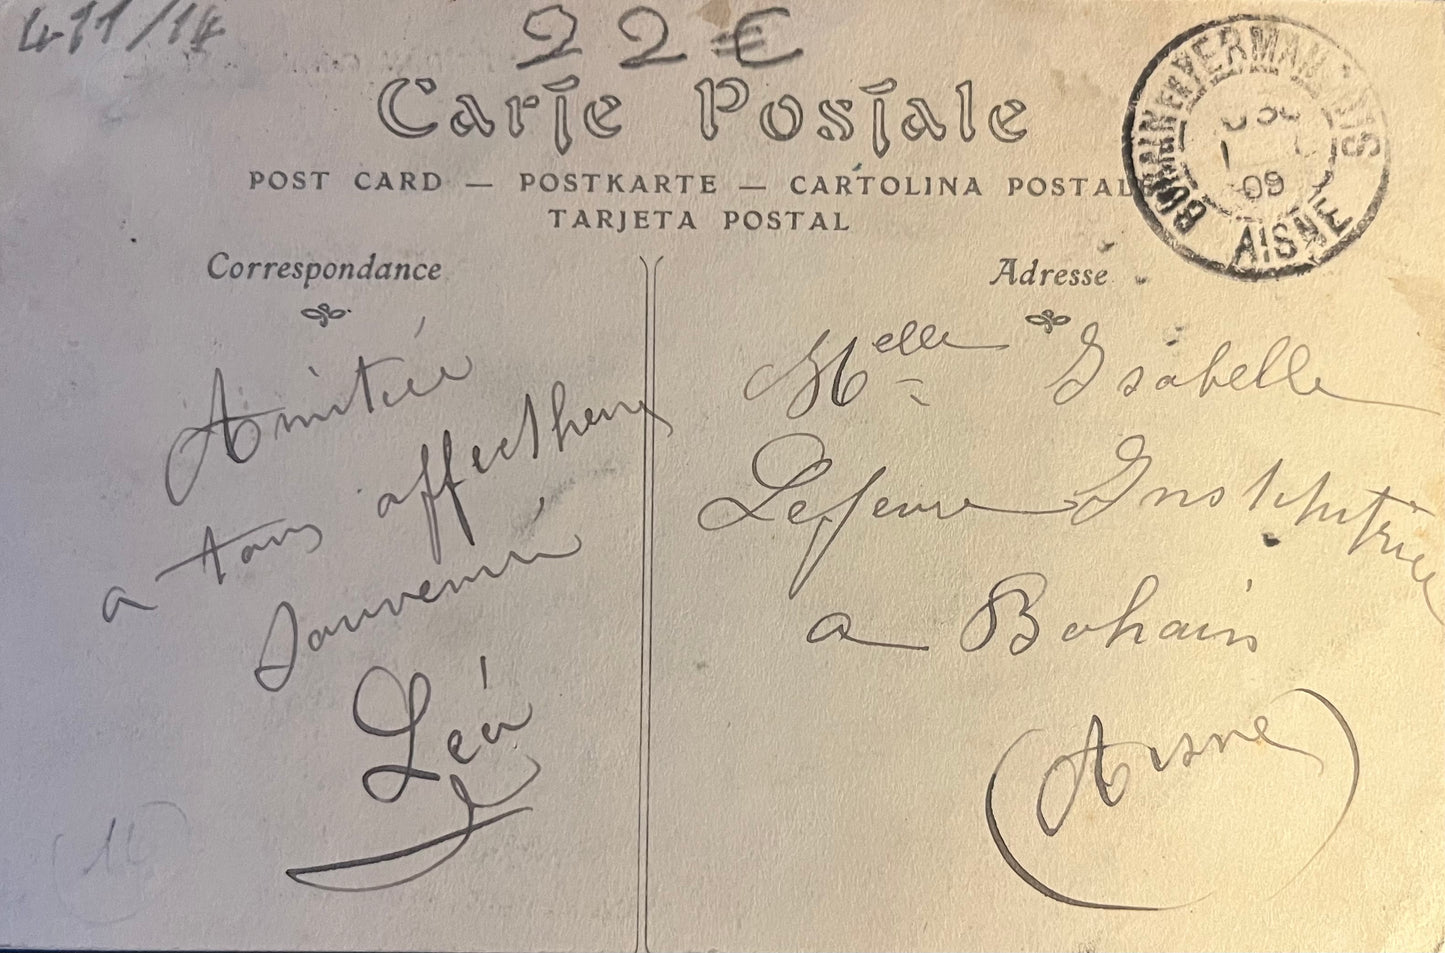 411/14
22€
Carte Postale
POST CARD — POSTKARTE — CARTOLINA POSTALE
TARJETA POSTAL
BOHAIN EN VERMANDOIS
09
AISNE
Correspondance
Adresse
Amitié
a tous affectheux
Souvenir
Léon
Melle Isabelle
Lefevre Institutrice
a Bohain
(Aisne)